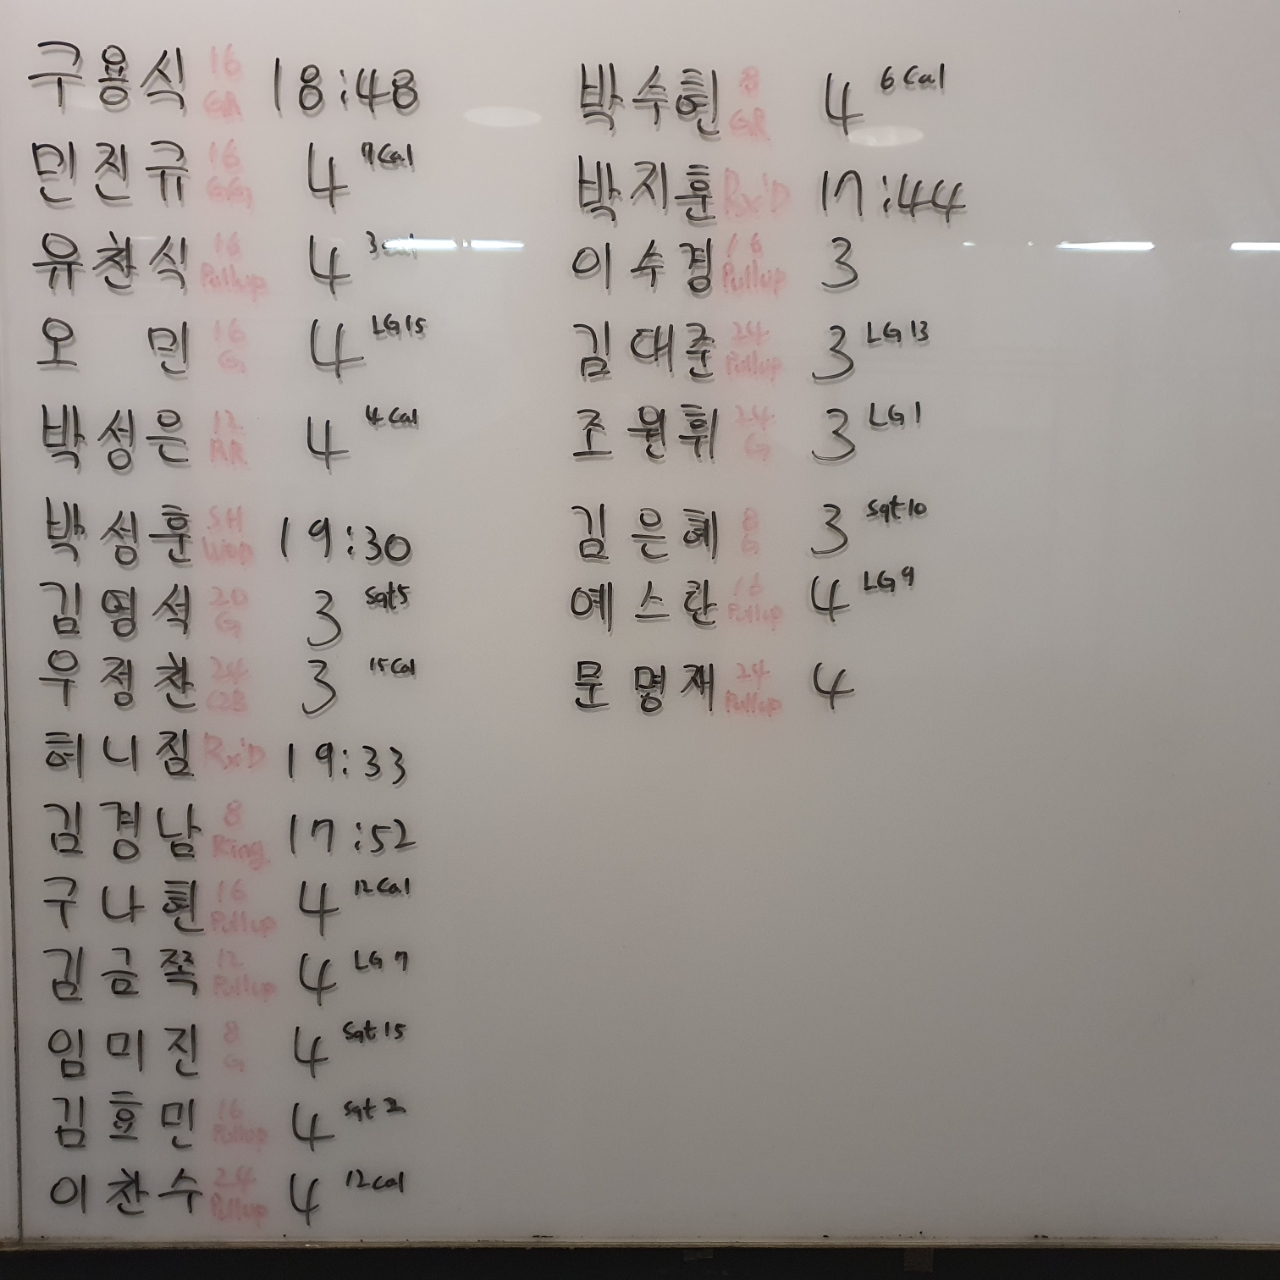 구용식 16 GR 18:48
민진규 16 GG 4 9Cal
유찬식 16 Pullup 4 3Cal
오 민 16 G 4 LG15
박성은 12 RR 4 4Cal
박성훈 SH 19:30
김영석 20 G 3 Sqt5
우정찬 24 C2B 3 15Cal
허니짐 Rx'D 19:33
김경남 8 Ring 17:52
구나현 16 Pullup 4 12Cal
김금쪽 12 Pullup 4 LG 7
임미진 8 G 4 Sqt 15
김효민 16 Pullup 4 Sqt 2
이찬수 24 Pullup 4 12Cal
박수현 8 GR 4 6Cal
박지훈 Rx'D 17:44
이수경 16 Pullup 3
김대준 24 Pullup 3 LG 13
조원휘 24 G 3 LG 1
김은혜 8 G 3 Sqt 10
예스란 16 Pullup 4 LG 9
문명재 24 Pullup 4